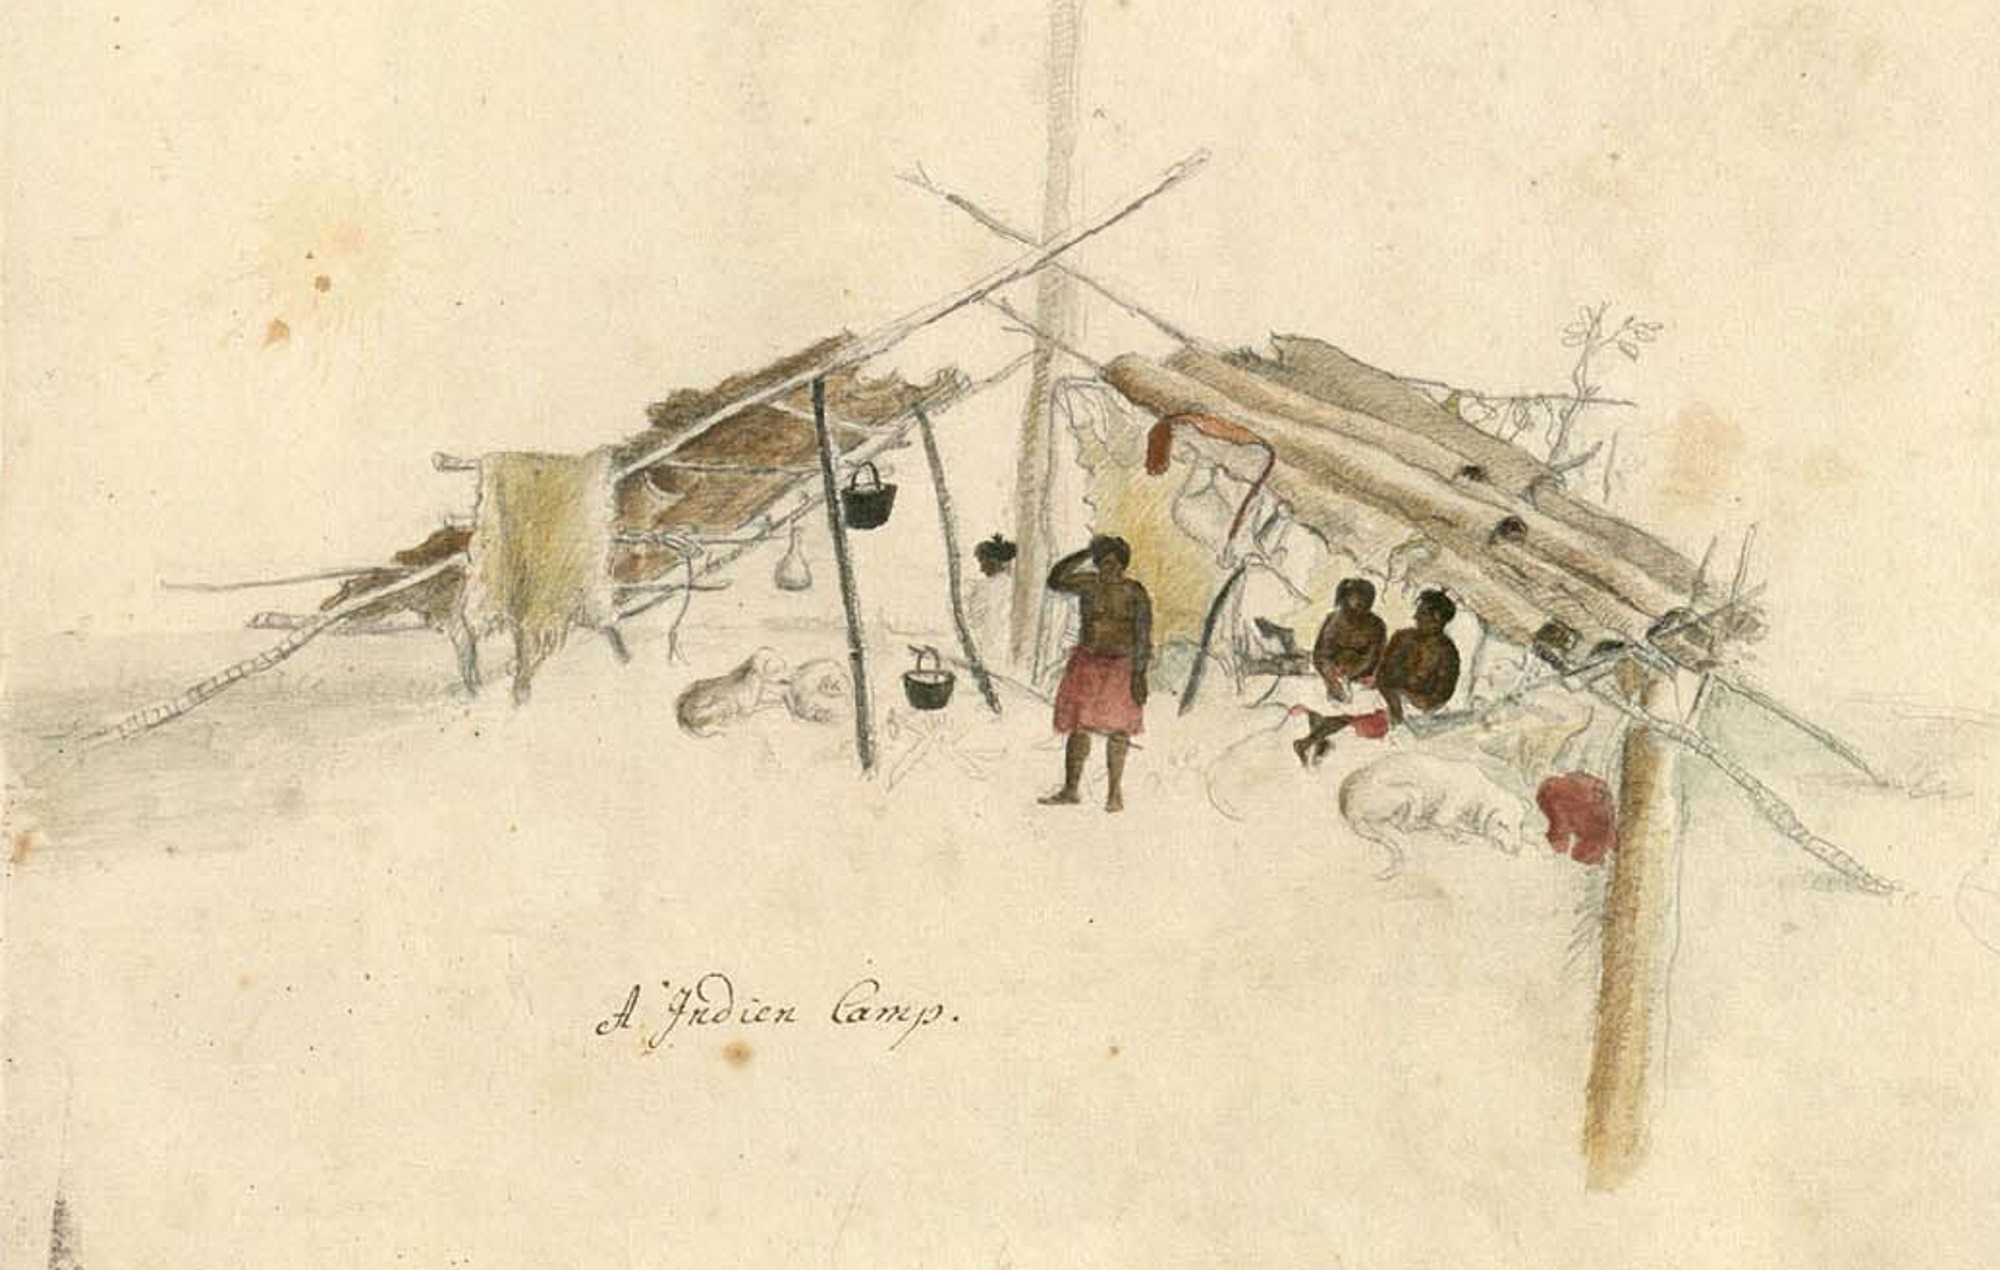 A Indien Camp.